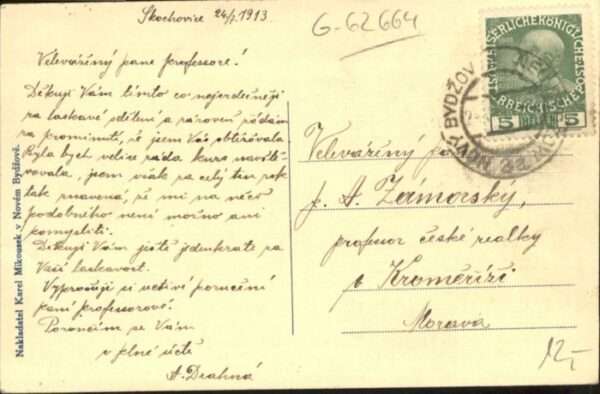 Skochovice 24/7. 1913
G-62664
Velevážený pane professore!
Děkuji Vám tímto co nejsrdečněji
za laskavé sdělení a zároveň žádám
za prominutí, že jsem Vás obtěžovala.
Byla bych velice ráda kurs navště-
vovala, jsem však za celý ten rok
tak znavená, že mi na něco
podobného není možno ani
pomysliti.
Děkuji Vám ještě jednkráte za
Vaši laskavost.
Vyprošuji si uctivé poručení
paní professorové.
Poroučím se Vám
v plné úctě
A. Drahná
Nakladatel Karel Mikoušek v Novém Bydžově.
KAISERLICHE KÖNIGLICHE
ÖSTERREICHISCHE
5 5
BYDŽOV
Velevážený pán
p. A. Zámorský,
professor české realky
v Kroměříži
Morava
12,-